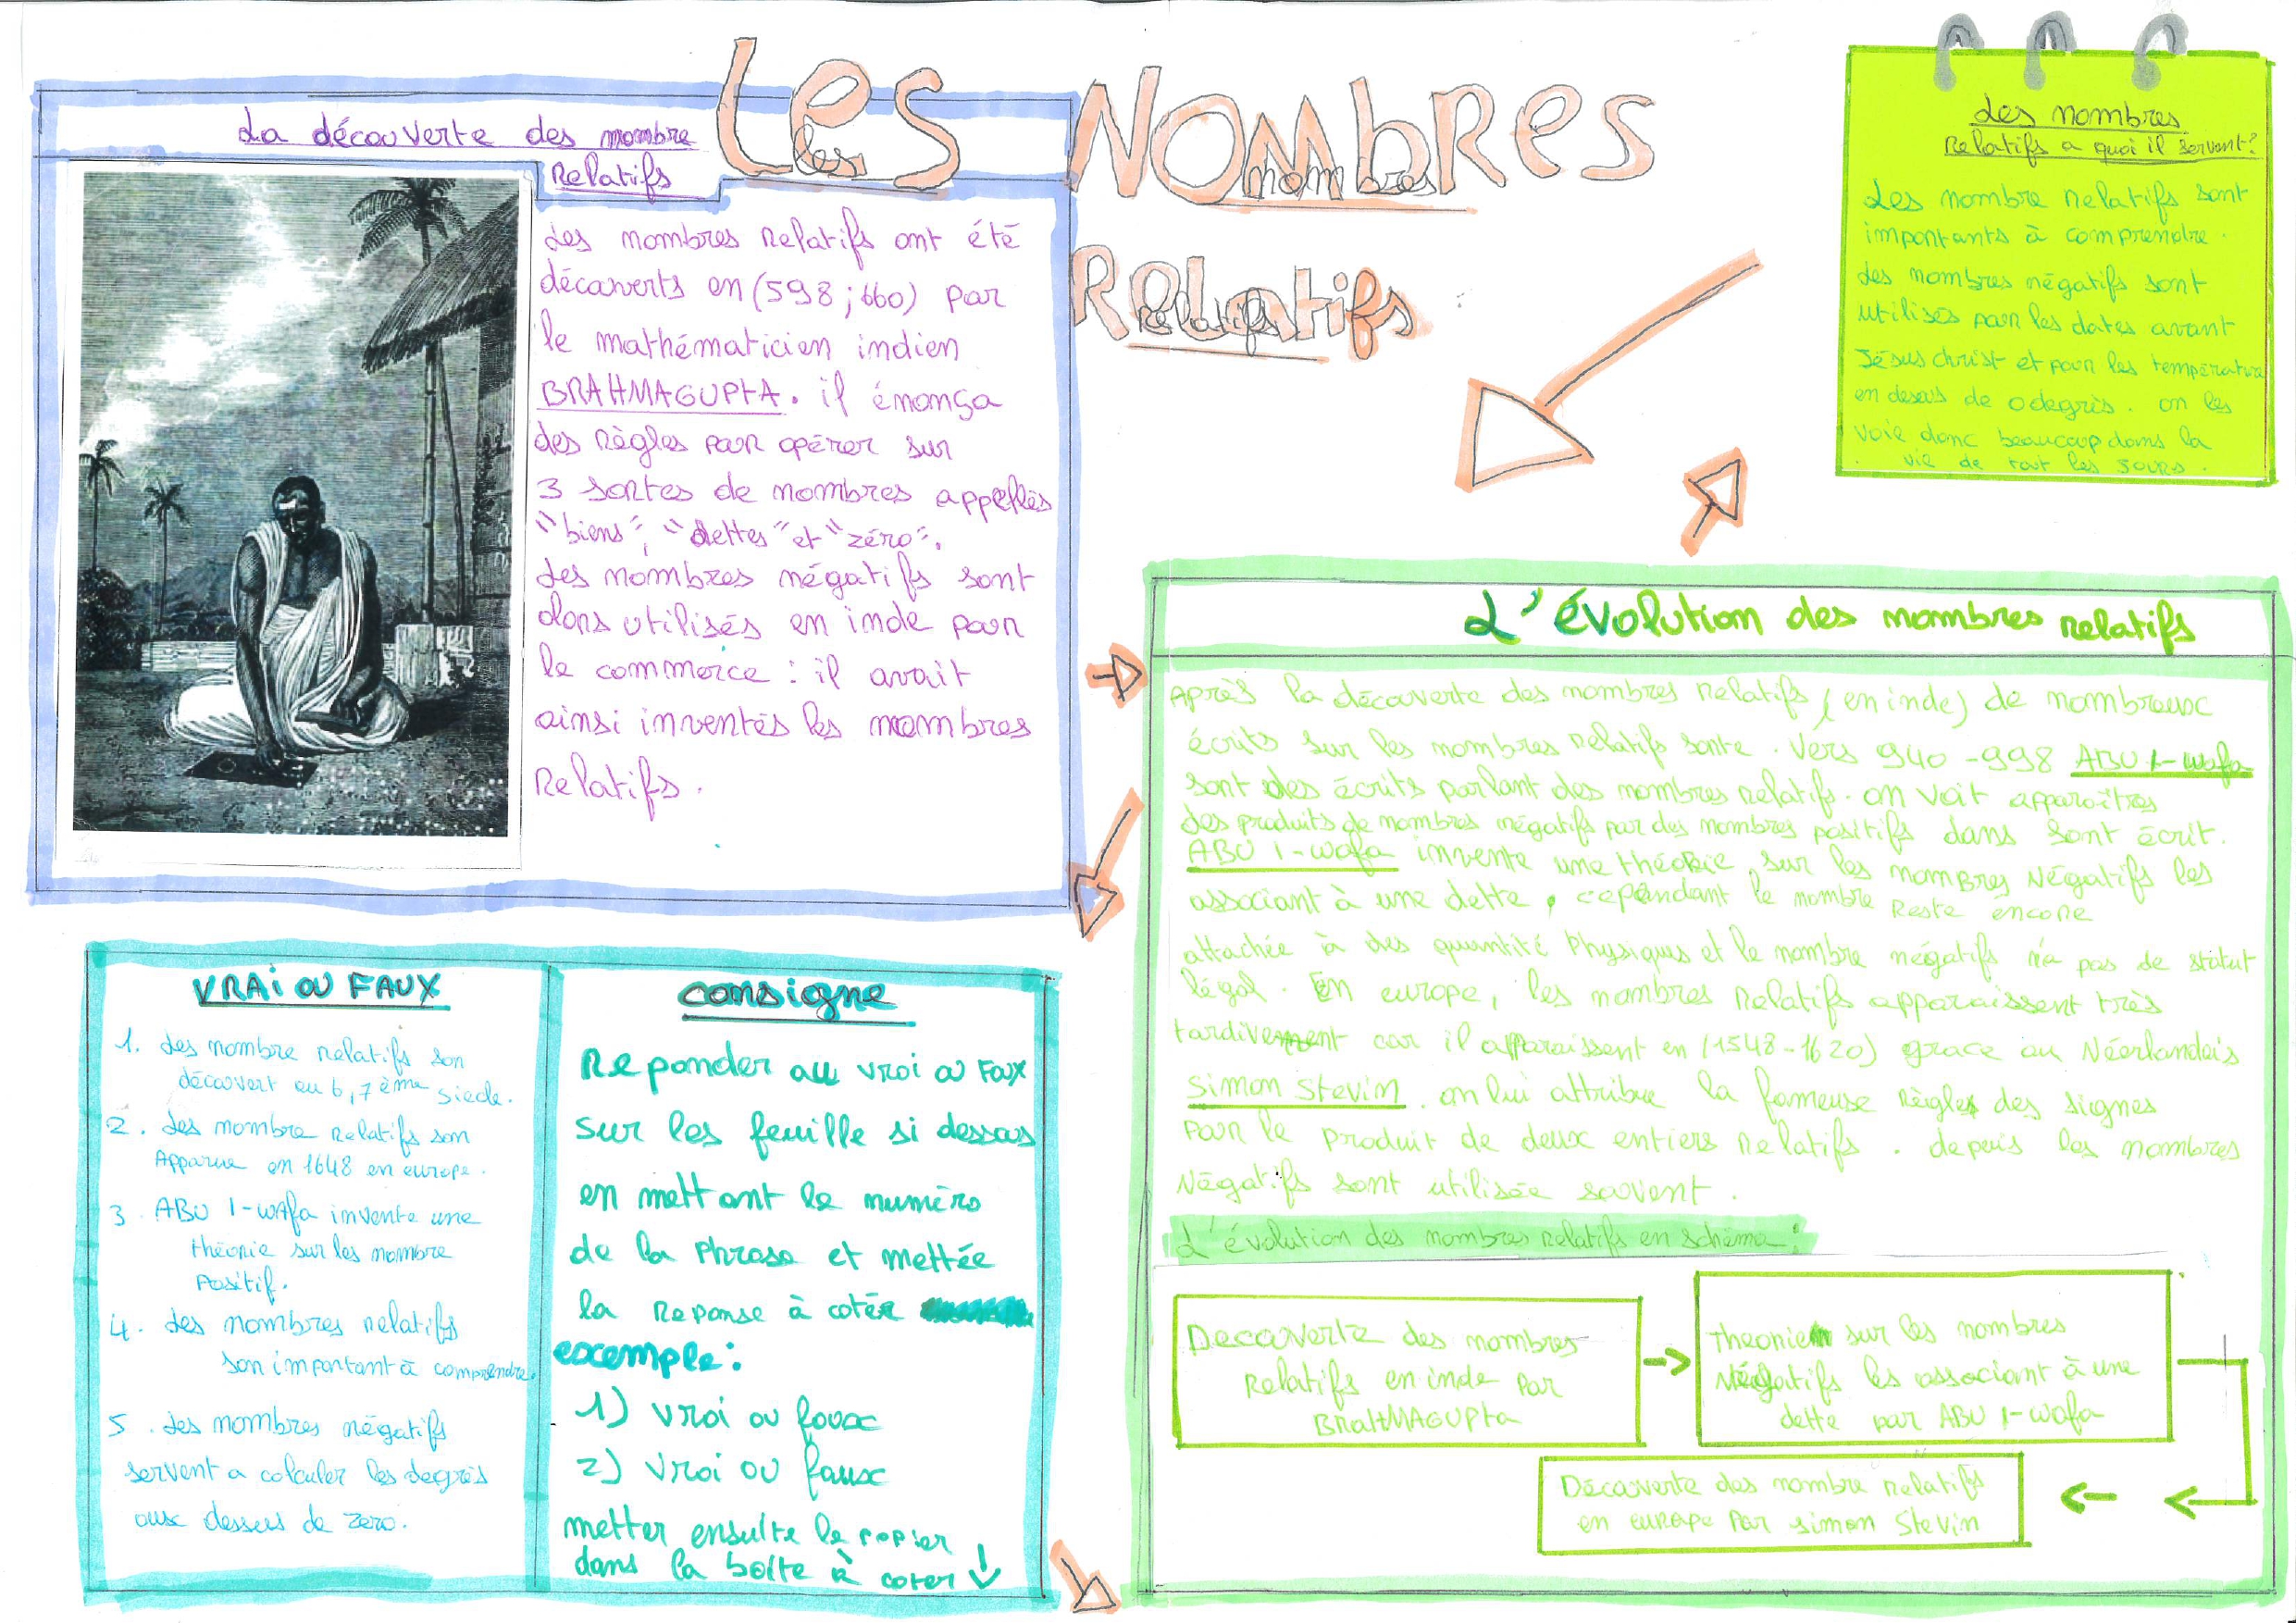 Les Nombres
les nombres
Relatifs
relatifs
La découverte des nombre
Relatifs
Les nombres Relatifs ont été
découverts en (598 ; 660) par
le mathématicien indien
BRAHMAGUPTA. il énonça
des règles pour opérer sur
3 sortes de nombres appellés
"biens", "dettes" et "zéro".
Les nombres négatifs sont
alors utilisés en inde pour
le commerce : il avait
ainsi inventés les nombres
Relatifs.
Les nombres
Relatifs a quoi il servent?
Les nombre relatifs sont
importants à comprendre.
Les nombres négatifs sont
utilisés pour les dates avant
Jésus christ et pour les température
en desous de 0 degrès. on les
voie donc beaucoup dans la
vie de tout les jours.
L'évolution des nombres relatifs
Après la découverte des nombres relatifs (en inde) de nombreux
écrits sur les nombres relatifs sorte. Vers 940-998 ABU l-wafa
sont des écrits parlant des nombres relatifs. on voit apparaîtres
des produits de nombres négatifs par des nombres positifs dans sont écrit.
ABU l-wafa invente une théorie sur les nombres Négatifs les
associant à une dette, cependant le nombre Reste encore
attachée à des quantité Physiques et le nombre négatifs n'a pas de statut
légal. En europe, les nombres relatifs apparaissent très
tardivement car il apparaissent en (1548-1620) grace au Néerlandais
Simon Stevin. on lui attribue la fameuse règles des signes
Pour le produit de deux entiers relatifs. depuis les nombres
Négatifs sont utilisée souvent.
L'évolution des nombres relatifs en schéma :
Decouverte des nombres
relatifs en inde par
BRaHMAGUPta
Theorie sur les nombres
Négatifs les associant à une
dette par ABU l-wafa
Découverte des nombre relatifs
en europe Par simon Stevin
VRAi OU FAUX
1. Les nombre relatifs son
découvert au 6,7ème siecle.
2. Les nombre relatifs son
Apparue en 1648 en europe.
3. ABU l-wAfa invente une
théorie sur les nombre
Positif.
4. Les nombres relatifs
son important à comprendre.
5. Les nombres négatifs
servent a calculer les degrés
aux dessus de zero.
consigne
Reponder au vrai ou Faux
sur les feuille si dessous
en mettant le numéro
de la Phrase et mettée
la Reponse à cotér
exemple:
1) vrai ou faux
2) vrai ou faux
metter ensuite le papier
dans la boîte à coter ↓